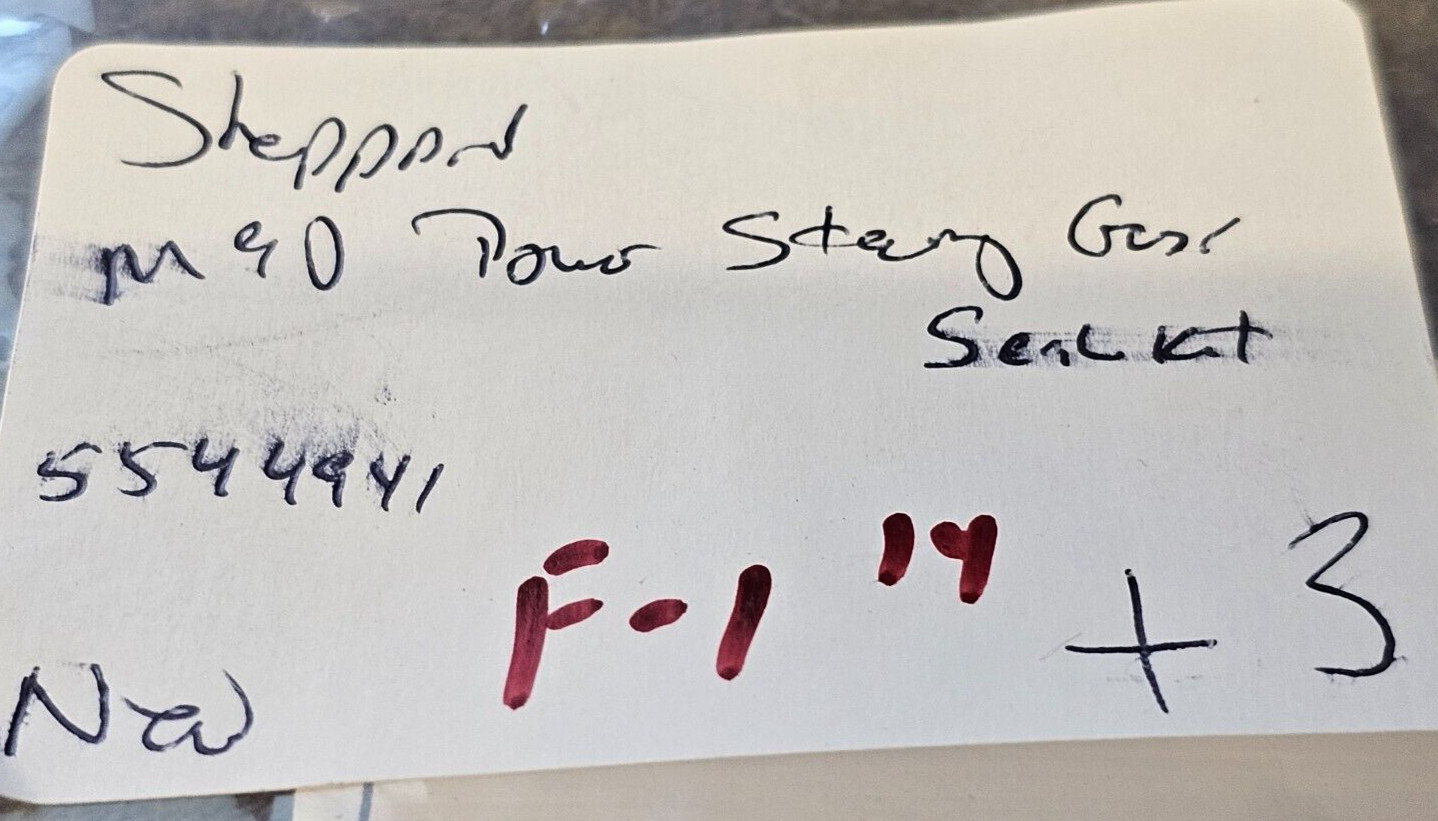 Sheppard
M90 Power Steering Gear
Seal Kit
5544941
F-1 "14 + 3
New